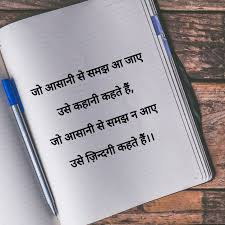 जो आसानी से समझ आ जाए
उसे कहानी कहते हैं,
जो आसानी से समझ न आए
उसे ज़िन्दगी कहते हैं।।